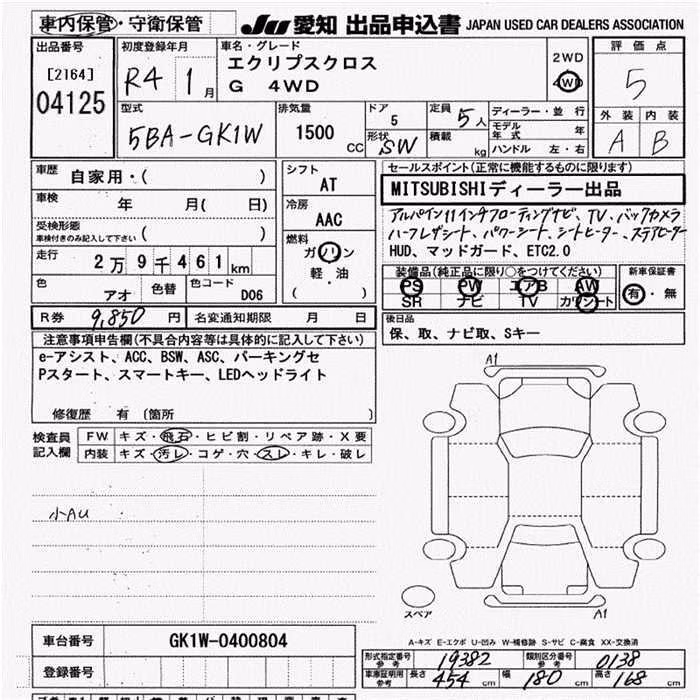 車内保管・守衛保管 JU 愛知 出品申込書 JAPAN USED CAR DEALERS ASSOCIATION
出品番号 初度登録年月 車名・グレード 評価点
[2164] R4 1月 エクリプスクロス 2WD 5
04125 G 4WD 4WD
型式 排気量 ドア 定員 ディーラー・並行 外装 内装
5BA-GK1W 1500 CC 5 5人 モデル年式 年 A B
形状 SW 積載 kg ハンドル 左・右
車歴 自家用・( ) シフト AT セールスポイント(正常に機能するものに限ります)
MITSUBISHIディーラー出品
車検 年 月( 日) 冷房 AAC
アルパイン11インチフローティングナビ、TV、バックカメラ
受検形態 ( )
車検付きのみ記入して下さい
ハーフレザシート、パワーシート、シートヒーター、ステアヒーター
走行 2万9千461km 燃料 ガソリン 軽・油 ( )
HUD、マッドガード、ETC2.0
色 アオ 色替 色コード D06
装備品(純正品に限り○をつけてください) 新車保証書
PS PW エアB AW 有・無
SR ナビ TV カワシート
R券 9,850円 名変通知期限 月 日
後日品
保、取、ナビ取、Sキー
注意事項申告欄(不具合内容等は具体的に記入して下さい)
e-アシスト、ACC、BSW、ASC、パーキングセ
Pスタート、スマートキー、LEDヘッドライト
修復歴 有 (箇所 )
検査員記入欄 FW キズ・飛石・ヒビ割・リペア跡・X要
内装 キズ・汚レ・コゲ・穴・スレ・キレ・破レ
小AU
A1
スペア
A1
A-キズ E-エクボ U-凹み W-補修跡 S-サビ C-腐食 XX-交換済
車台番号 GK1W-0400804
登録番号
形式指定番号 参考 19382 類別区分番号 参考 0138
車庫証明用 参考 長さ 454 cm 幅 180 cm 高さ 168 cm